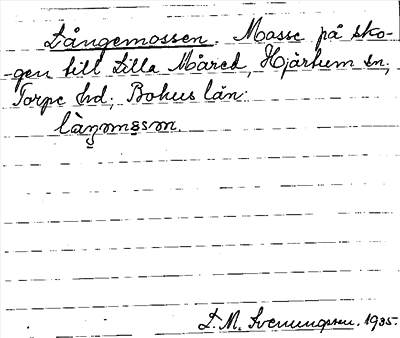 Långemossen. Mosse på sko-
-gen till Lilla Måred, Hjärtum sn,
Torpe hd, Bohus län.
làŋmɷsm.
S. M. Svenungsson. 1935.